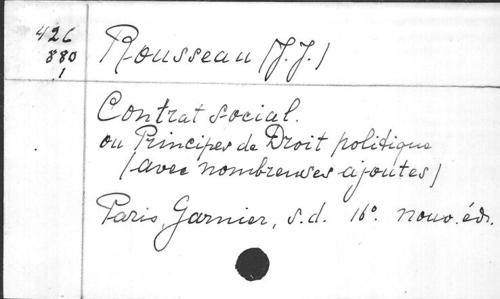 426
880
1
Rousseau (J.J.)
Contrat social.
ou Principes de Droit politique
(avec nombreuses ajoutes)
Paris, Garnier, s.d. 16°. nouv. éd.